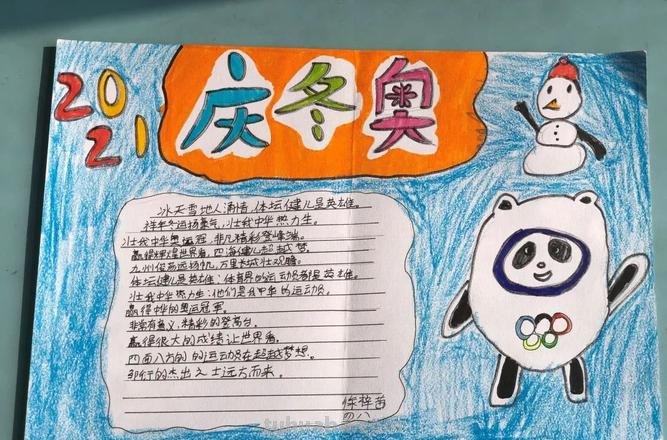 2021
庆冬奥
冰天雪地人清情,体坛健儿是英雄。
祥年冬运扬豪气,壮我中华热力生。
壮我中华奥运冠,非凡精彩登峰巅。
赢得辉煌世界看,四海健儿超越梦。
九州俊杰远扬帆,万里长城壮观瞻。
体坛健儿是英雄:体育界的运动员都是英雄。
壮我中华热力生:他们是我中华的运动员。
赢得中华的奥运冠军。
非常有意义,精彩的登高台。
赢得很大的成绩让世界看。
四面八方的的运动员在超越梦想。
各行的杰出人士远方而来。
梓茜
四八